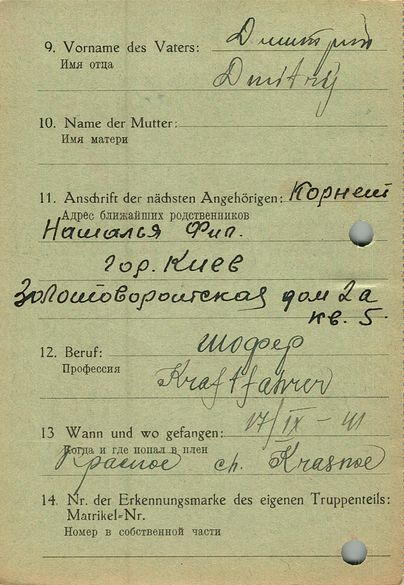 9. Vorname des Vaters: Дмитрий
Имя отца Dmitrÿ
10. Name der Mutter:
Имя матери
11. Anschrift der nächsten Angehörigen: Корнет
Адрес ближайших родственников
Наталья Фил.
гор. Киев
Золотоворотская дом 2а
кв. 5.
12. Beruf: шофер
Профессия Kraftfahrer
13 Wann und wo gefangen: 17/IX - 41
Когда и где попал в плен
Красное ch. Krasnoe
14. Nr. der Erkennungsmarke des eigenen Truppenteils:
Matrikel-Nr.
Номер в собственной части